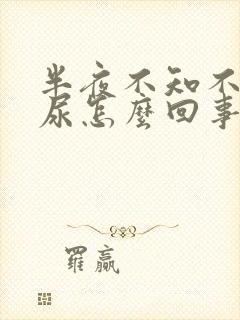 半夜不知不
尿怎麼回事
羅贏